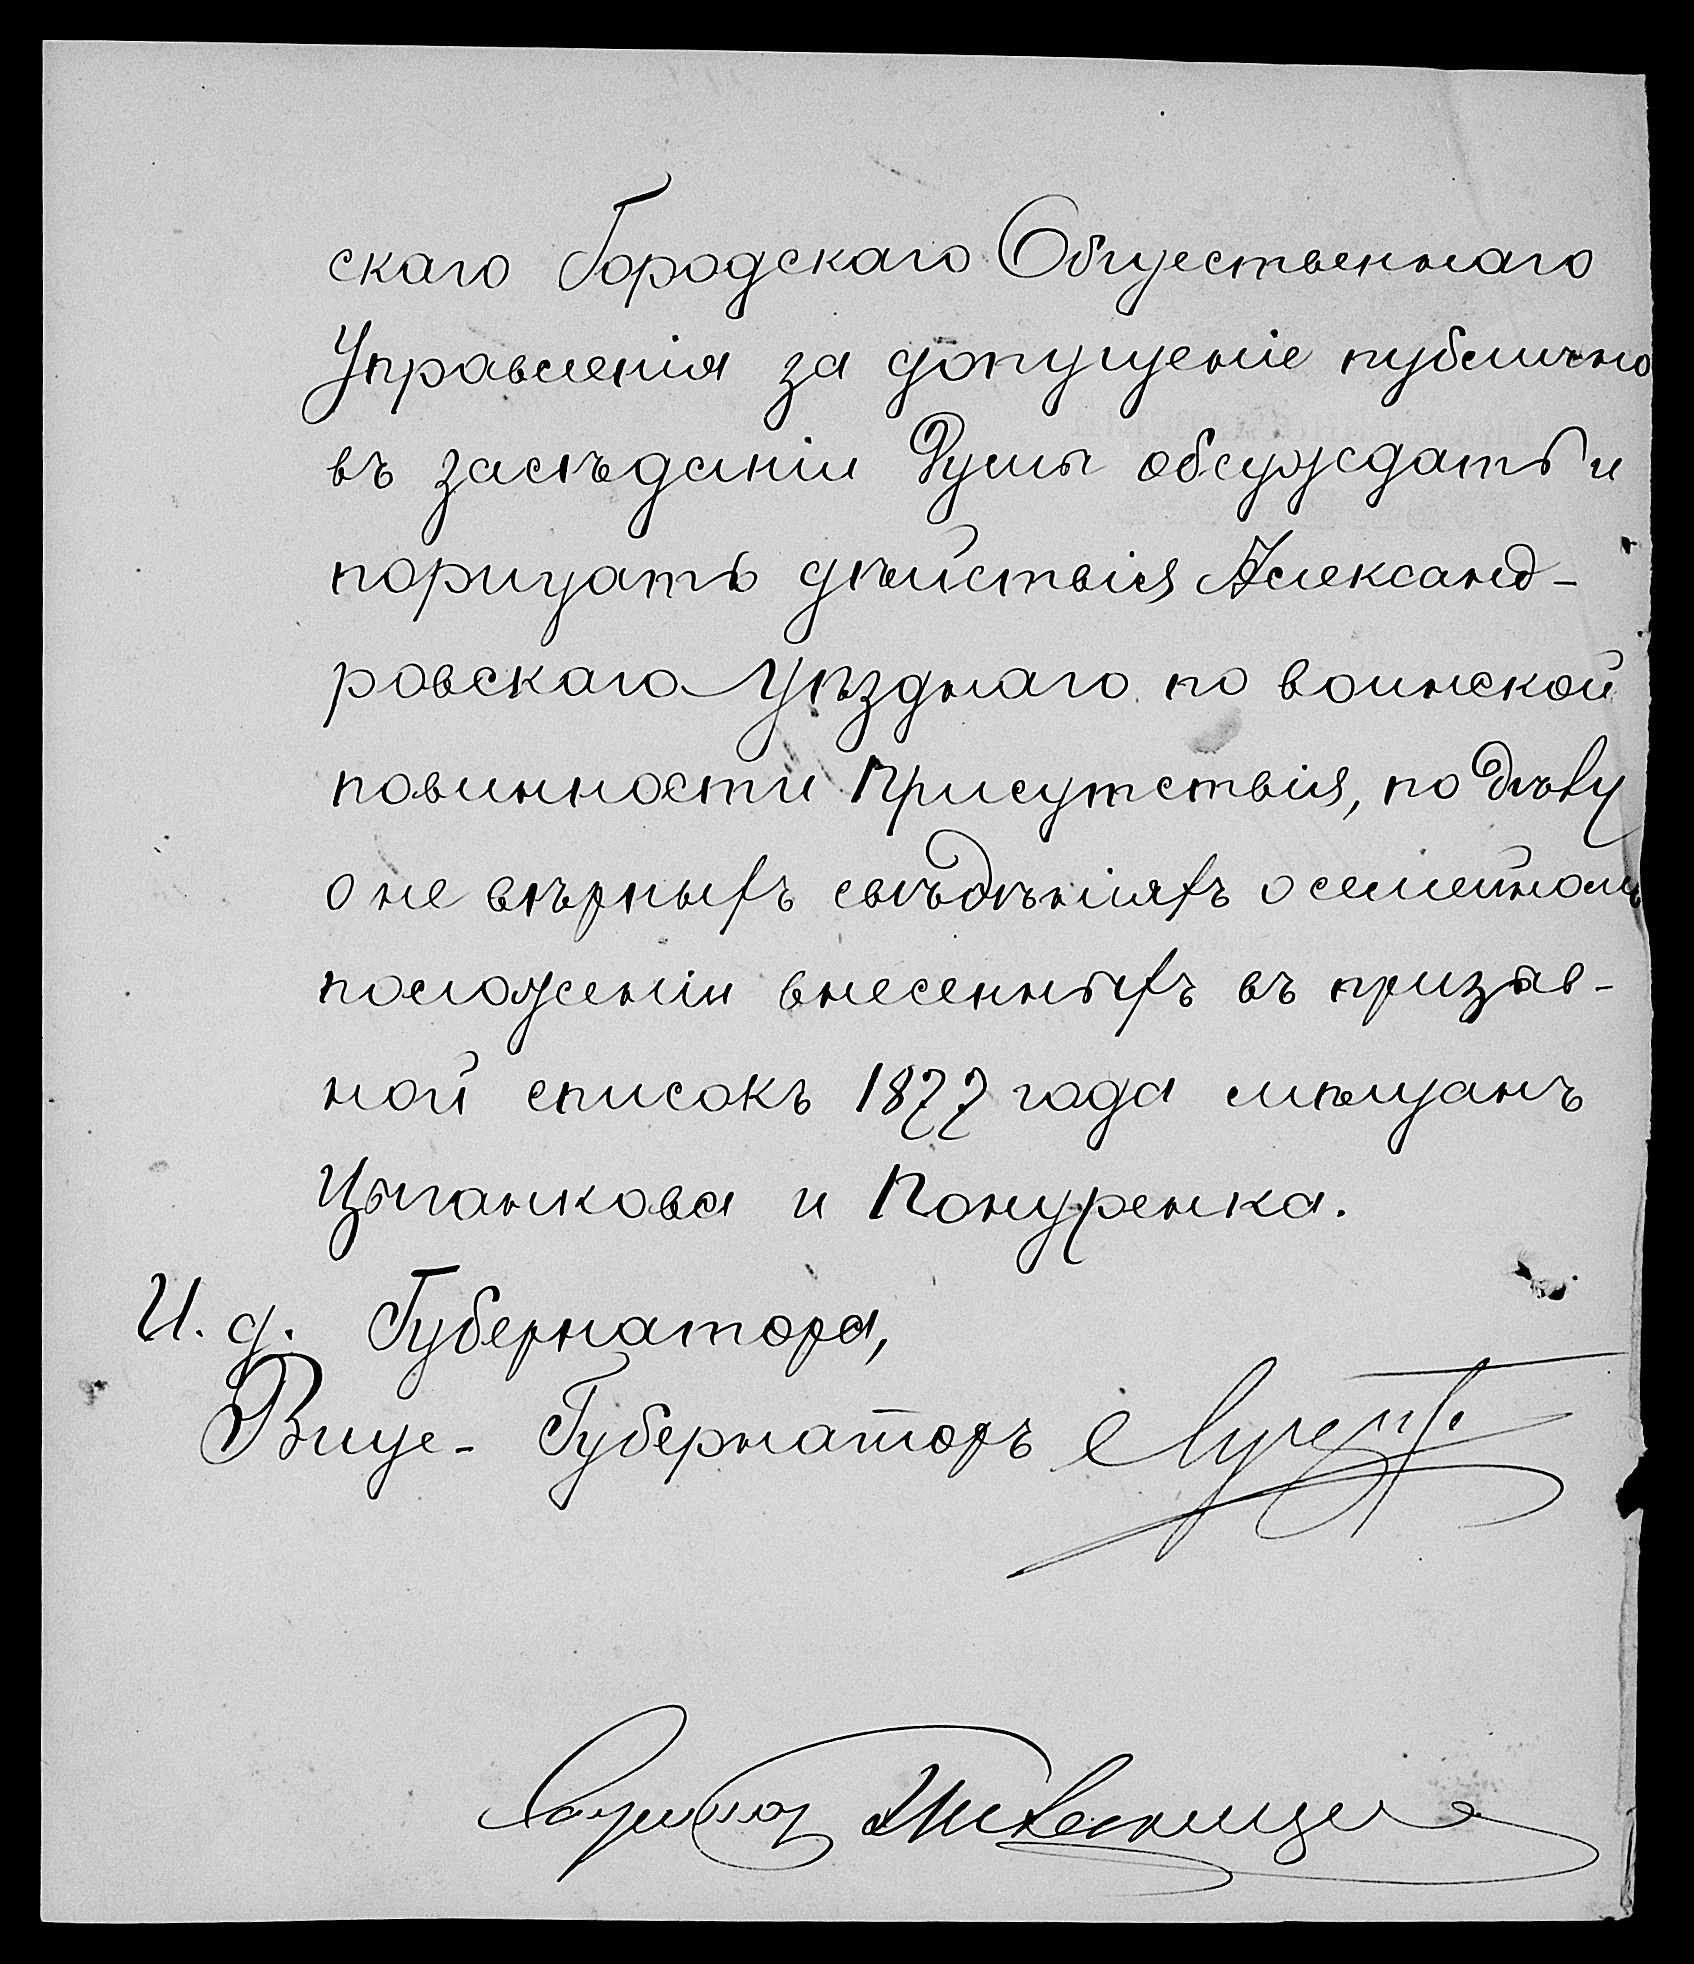 скаго Городскаго Общественнаго
Управленія за допущеніе публично
въ засѣданіи Думы обсуждать и
порицать дѣйствія Александ-
ровскаго Уѣзднаго по воинской
повинности Присутствія, по дѣлу
о не вѣрныхъ свѣдѣніяхъ о семейномъ
положеніи внесенныхъ въ призыв-
ной списокъ 1877 года мѣщанъ
Цыганкова и Понуренка.
И. д. Губернатора,
Вице-Губернаторъ